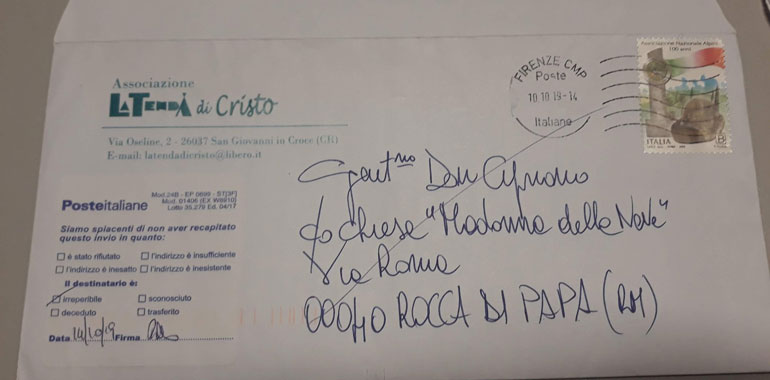 Associazione
LaTenda di Cristo
Via Oseline, 2 - 26037 San Giovanni in Croce (CR)
E-mail: latendadicristo@libero.it
FIRENZE CMP
Poste
10.10.19-14
Italiane
Associazione Nazionale Alpini
100 anni
ITALIA
B
Posteitaliane
Mod.24B - EP 0699 - ST[3F]
Mod. 01406 (EX W6810)
Lotto 35.279 Ed. 04/17
Siamo spiacenti di non aver recapitato
questo invio in quanto:
è stato rifiutato
l'indirizzo è insufficiente
l'indirizzo è inesatto
l'indirizzo è inesistente
Il destinatario è:
irreperibile
sconosciuto
deceduto
trasferito
Data 14/10/19 Firma
Gent.mo Don Cipriano
c/o Chiesa "Madonna della Neve"
Via Roma
00040 ROCCA DI PAPA (RM)